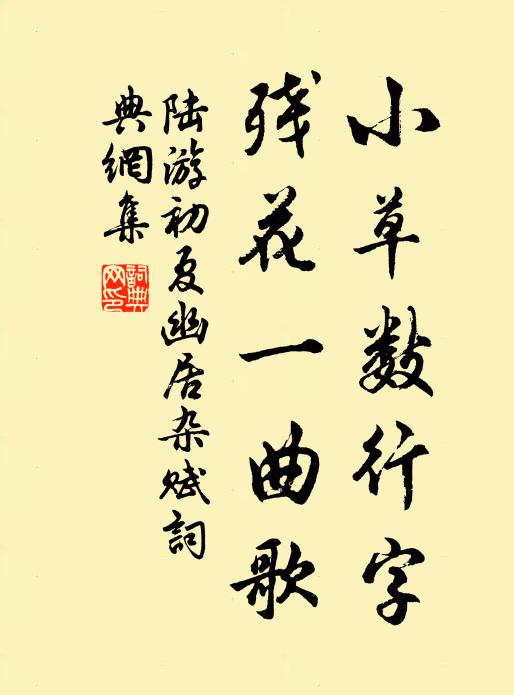 小草数行字
残花一曲歌
陆游初夏幽居杂赋詞
典網集
詞典
网印